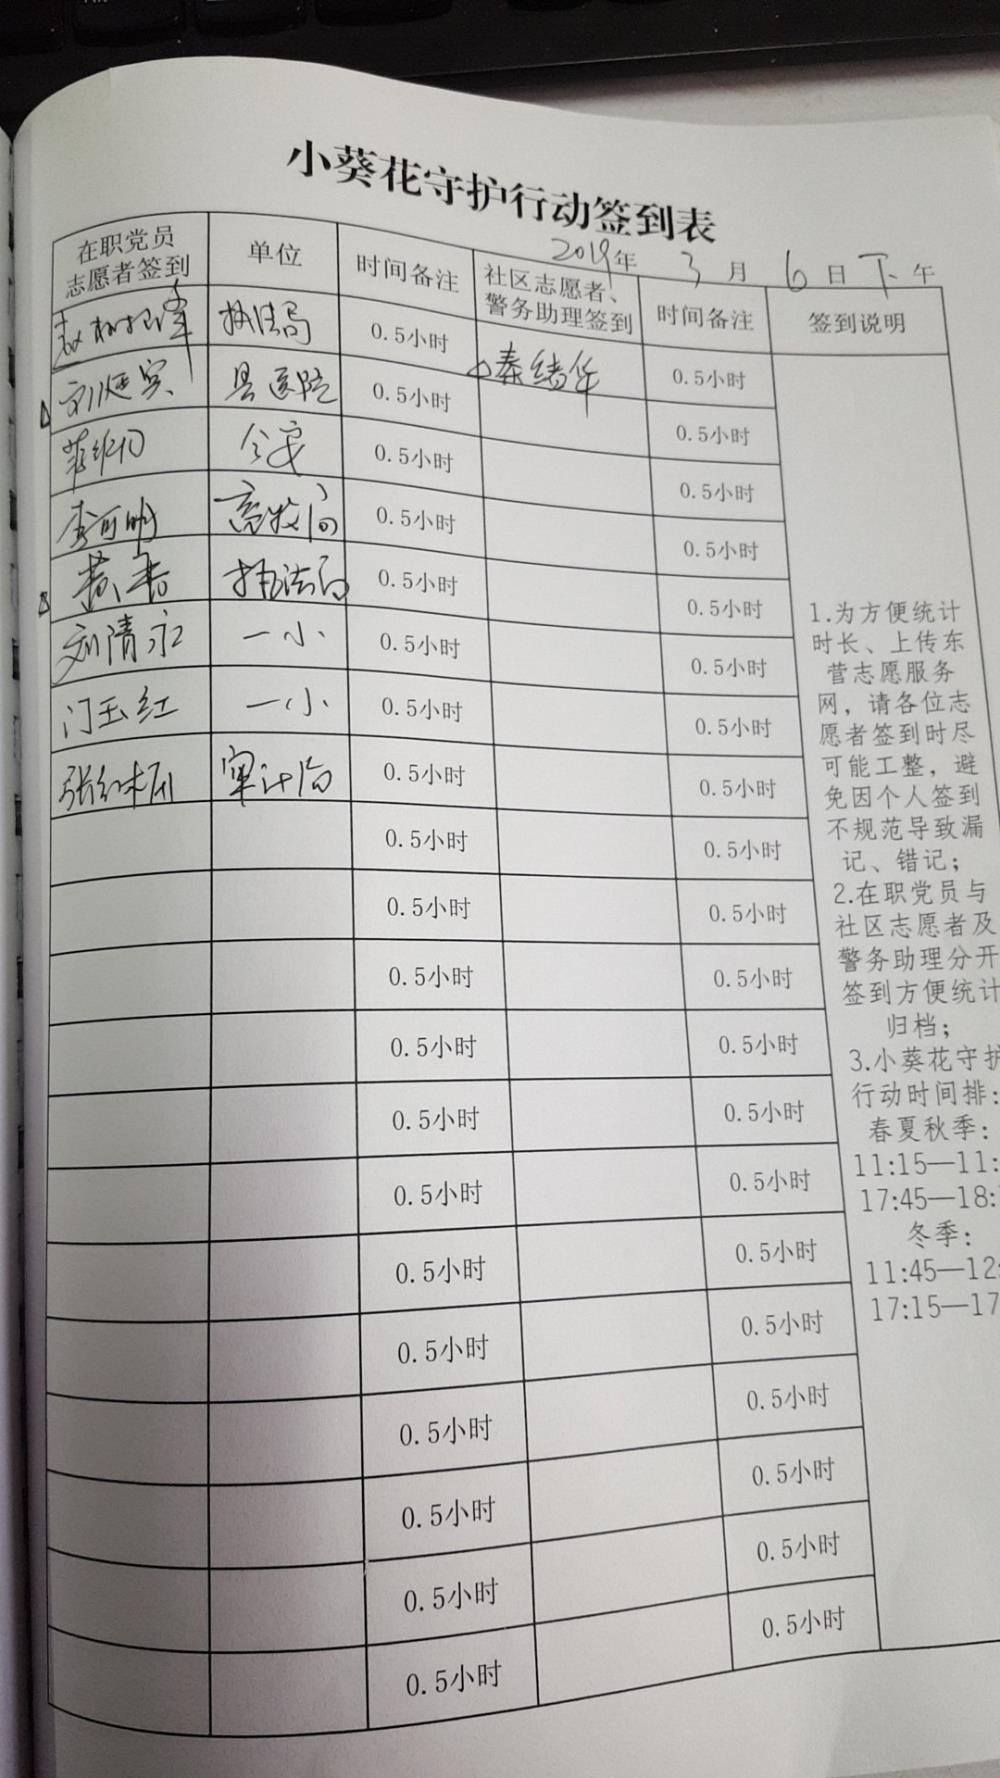 小葵花守护行动签到表
2019年 3月 6日 下午
在职党员
志愿者签到
单位
时间备注
社区志愿者、
警务助理签到
时间备注
签到说明
执法局 0.5小时 秦绪华 0.5小时
刘延宾 县医院 0.5小时 0.5小时
公安 0.5小时 0.5小时
李可明 畜牧局 0.5小时 0.5小时
黄春 执法局 0.5小时 0.5小时
刘清永 一小 0.5小时 0.5小时
门玉红 一小 0.5小时 0.5小时
审计局 0.5小时 0.5小时
0.5小时 0.5小时
0.5小时 0.5小时
0.5小时 0.5小时
0.5小时 0.5小时
0.5小时 0.5小时
0.5小时 0.5小时
0.5小时 0.5小时
0.5小时 0.5小时
0.5小时 0.5小时
0.5小时 0.5小时
0.5小时 0.5小时
0.5小时 0.5小时
1.为方便统计
时长、上传东
营志愿服务
网，请各位志
愿者签到时尽
可能工整，避
免因个人签到
不规范导致漏
记、错记；
2.在职党员与
社区志愿者及
警务助理分开
签到方便统计
归档；
3.小葵花守护
行动时间排：
春夏秋季：
11:15—11:
17:45—18:
冬季：
11:45—12:
17:15—17